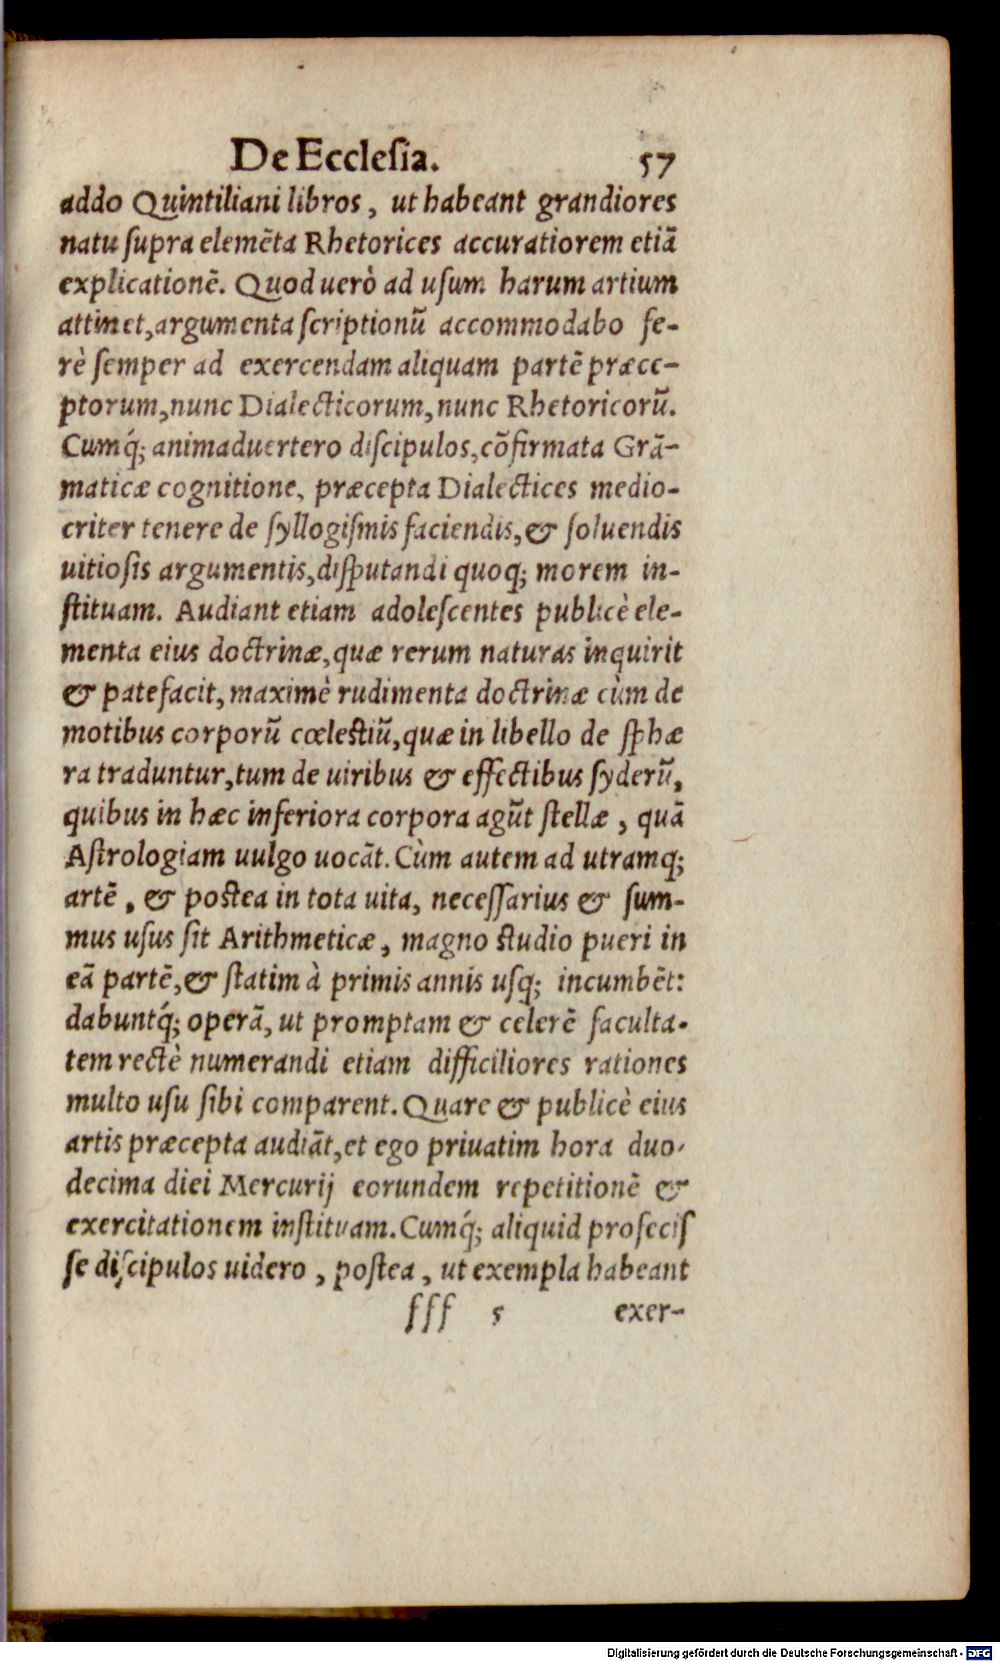 De Ecclesia. 57
addo Quintiliani libros, ut habeant grandiores
natu supra elemẽta Rhetorices accuratiorem etiã
explicationẽ. Quod uerò ad usum harum artium
attinet, argumenta scriptionũ accommodabo fe-
rè semper ad exercendam aliquam partẽ præce-
ptorum, nunc Dialecticorum, nunc Rhetoricorũ.
Cumq́; animaduertero discipulos, cõfirmata Grã-
maticæ cognitione, præcepta Dialectices medio-
criter tenere de syllogismis faciendis, & soluendis
uitiosis argumentis, disputandi quoq; morem in-
stituam. Audiant etiam adolescentes publicè ele-
menta eius doctrinæ, quæ rerum naturas inquirit
& patefacit, maximè rudimenta doctrinæ cùm de
motibus corporũ cœlestiũ, quæ in libello de sphæ
ra traduntur, tum de uiribus & effectibus syderũ,
quibus in hæc inferiora corpora agũt stellæ, quã
Astrologiam uulgo uocãt. Cùm autem ad utramq;
artẽ, & postea in tota uita, necessarius & sum-
mus usus sit Arithmeticæ, magno studio pueri in
eã partẽ, & statim à primis annis usq; incumbẽt:
dabuntq́; operã, ut promptam & celerẽ faculta-
tem rectè numerandi etiam difficiliores rationes
multo usu sibi comparent. Quare & publicè eius
artis præcepta audiãt, et ego priuatim hora duo-
decima diei Mercurij eorundem repetitionẽ &
exercitationem instituam. Cumq́; aliquid profecis
se discipulos uidero, postea, ut exempla habeant
fff 5 exer-
Digitalisierung gefördert durch die Deutsche Forschungsgemeinschaft - DFG